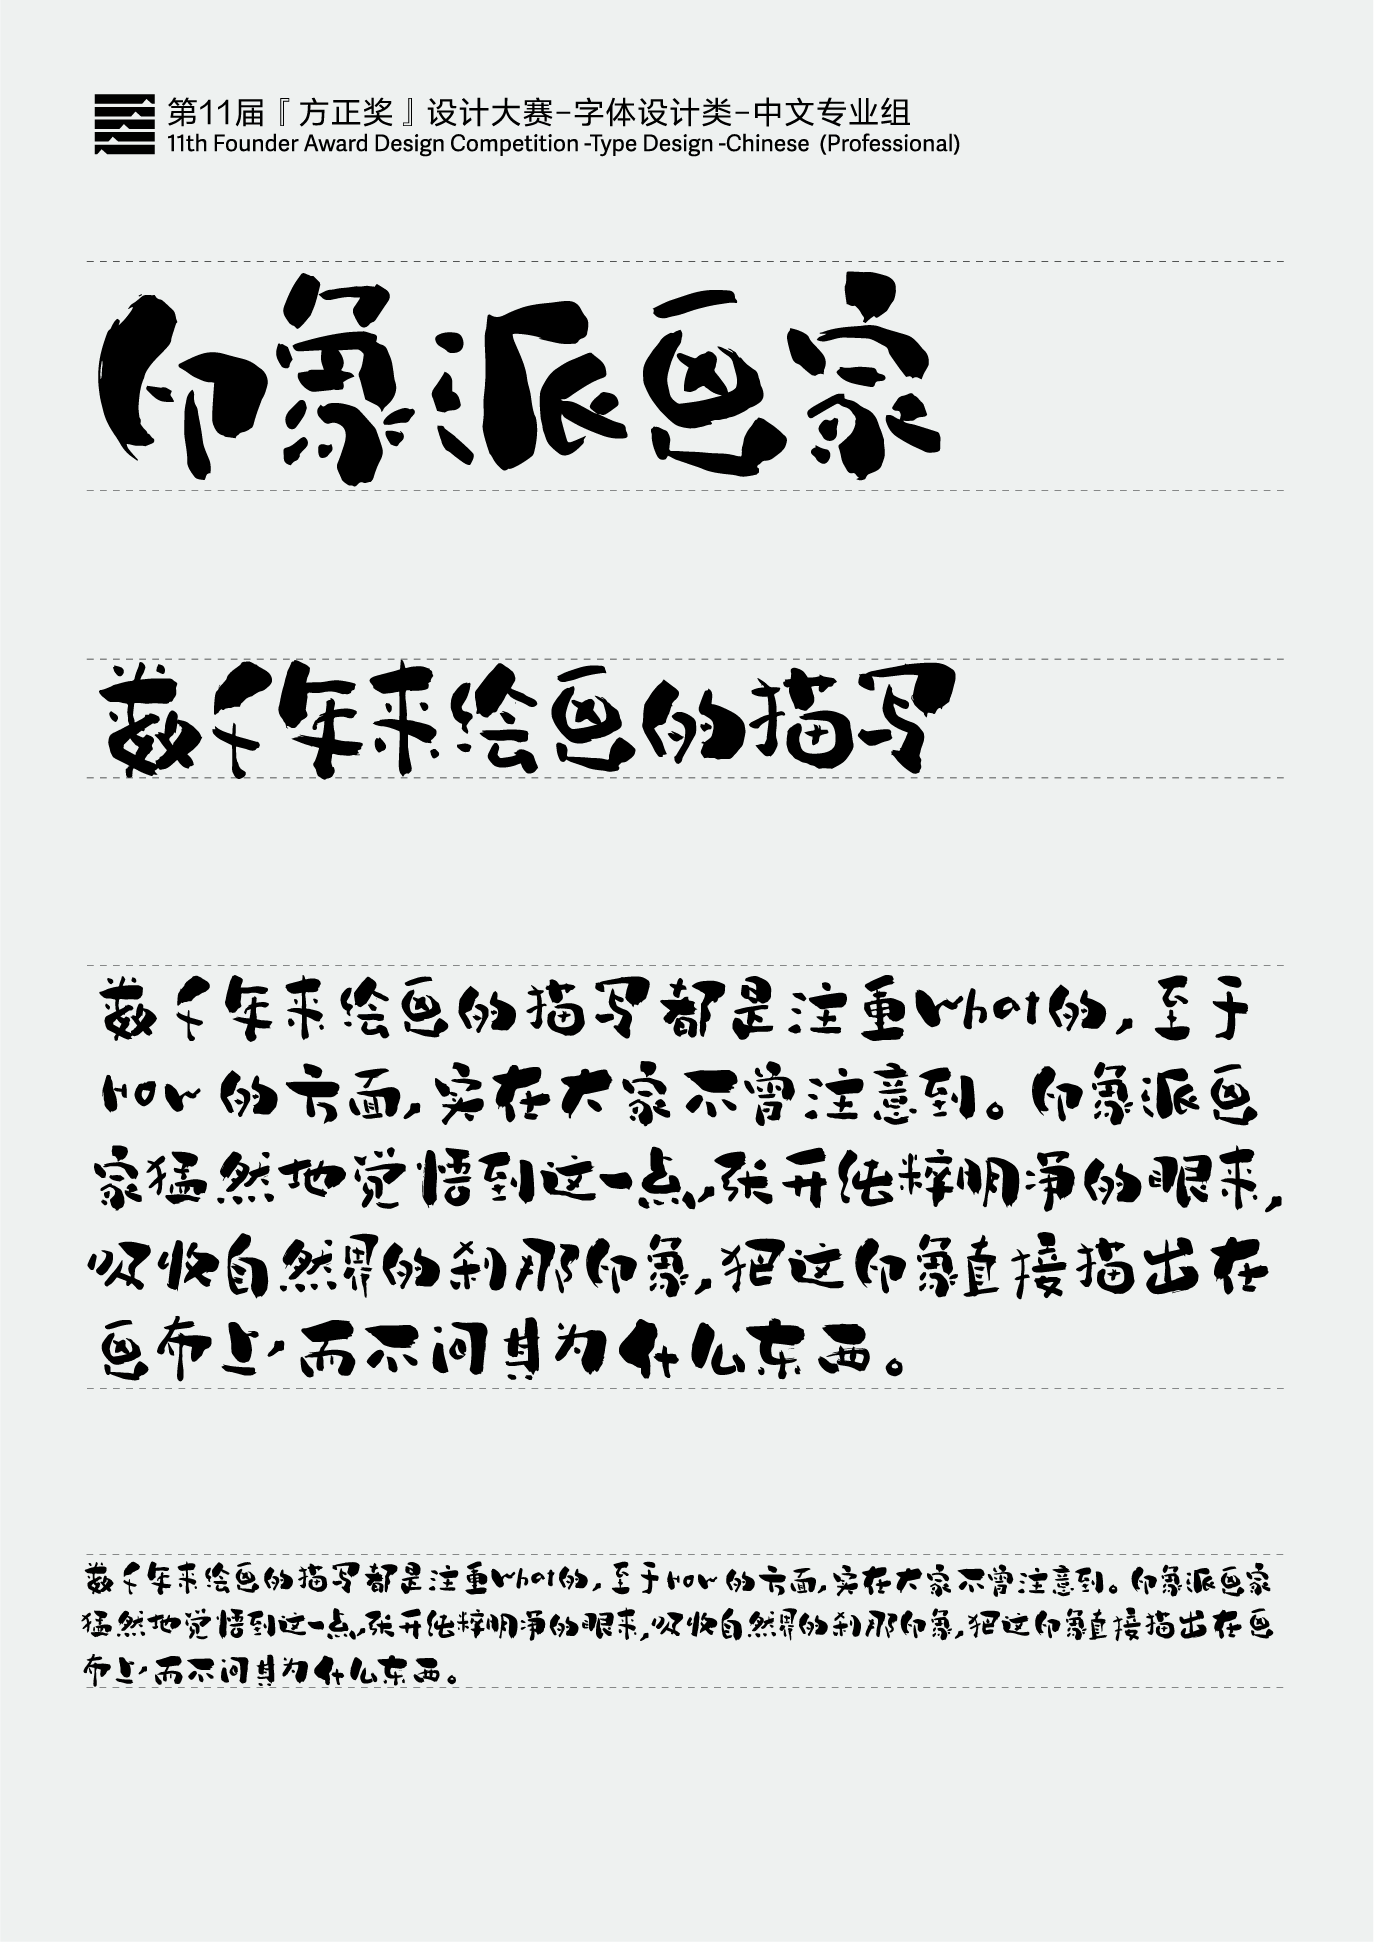 第11届『方正奖』设计大赛-字体设计类-中文专业组
11th Founder Award Design Competition -Type Design -Chinese (Professional)
印象派画家
数千年来绘画的描写
数千年来绘画的描写都是注重what的，至于
how的方面，实在大家不曾注意到。印象派画
家猛然地觉悟到这一点，张开纯粹明净的眼来，
吸收自然界的刹那印象，把这印象直接描出在
画布上，而不问其为什么东西。
数千年来绘画的描写都是注重what的，至于how的方面，实在大家不曾注意到。印象派画家
猛然地觉悟到这一点，张开纯粹明净的眼来，吸收自然界的刹那印象，把这印象直接描出在画
布上，而不问其为什么东西。